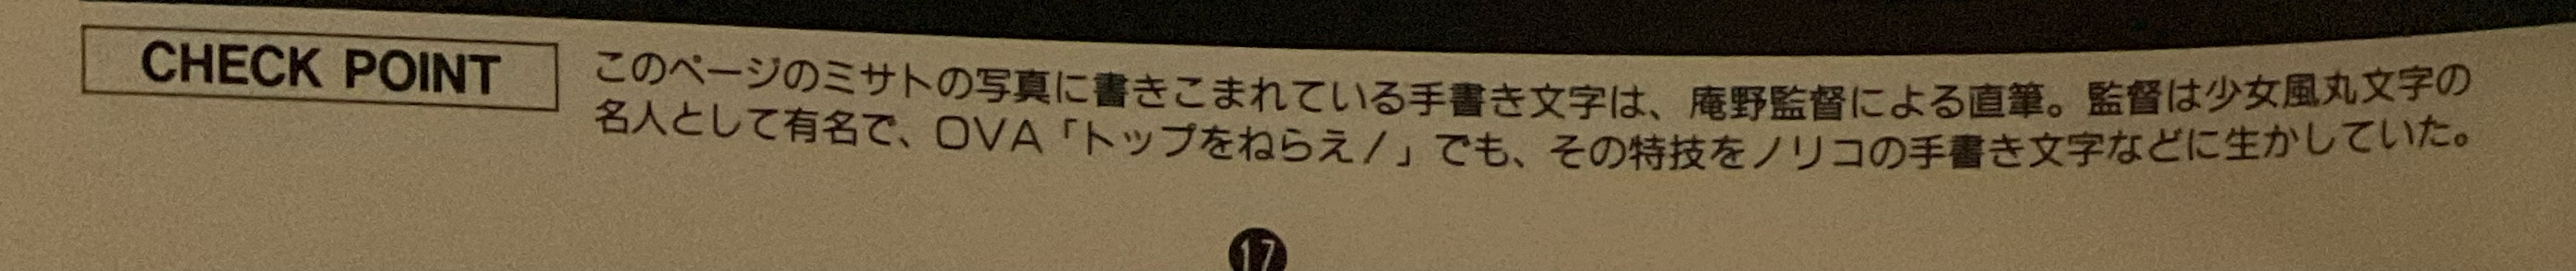 CHECK POINT
このページのミサトの写真に書きこまれている手書き文字は、庵野監督による直筆。監督は少女風丸文字の
名人として有名で、OVA「トップをねらえ！」でも、その特技をノリコの手書き文字などに生かしていた。
17